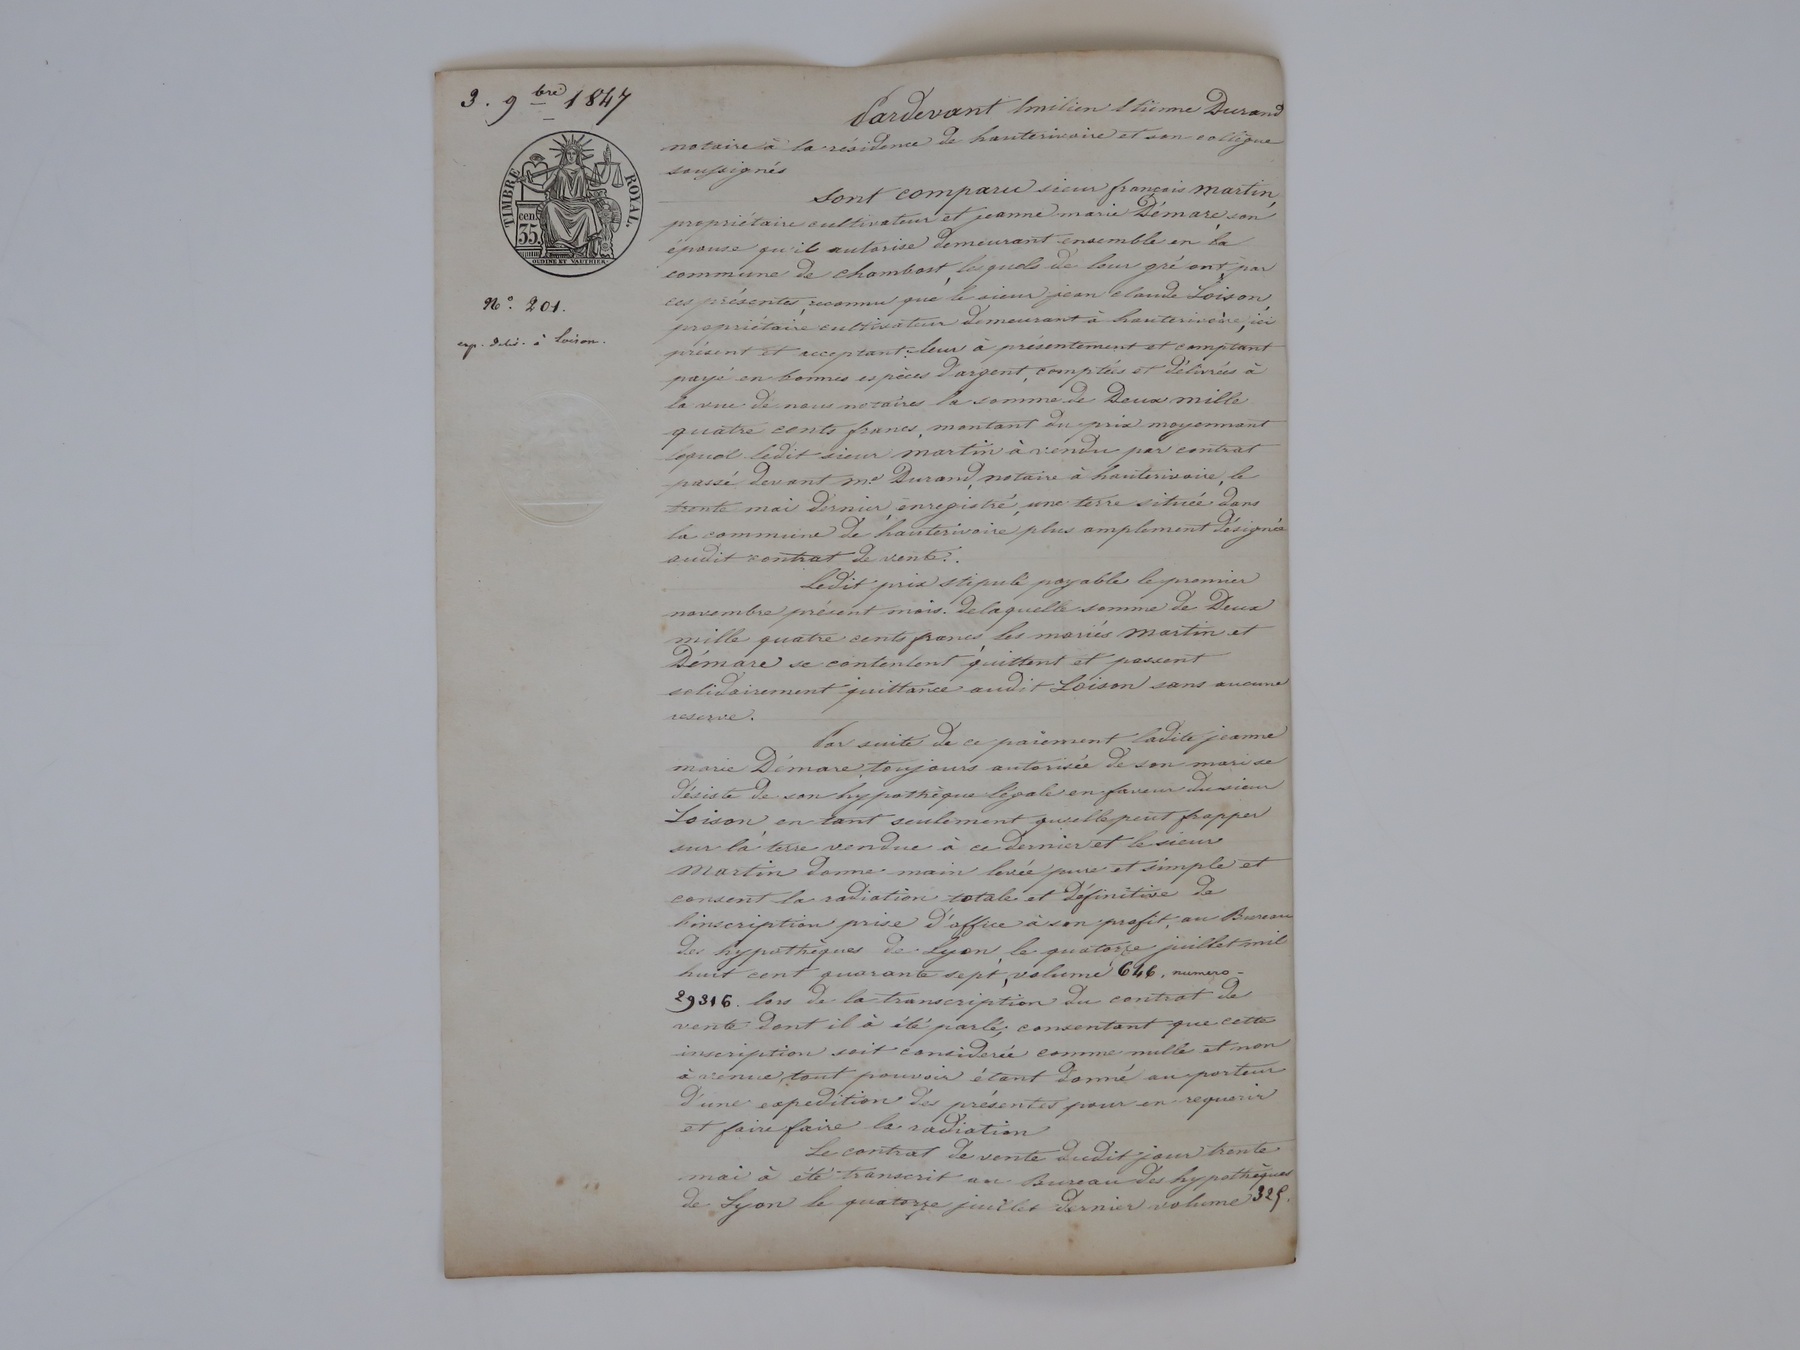 3. 9bre 1847
TIMBRE ROYAL
cen. 35.
OUDINÉ ET VAUTHIER.
N° 201.
exp. déliv. à Loison.
Pardevant Emilien Etienne Durand
notaire à la résidence de hauterivoire et son collègue
soussignés
Sont comparu sieur françois Martin,
propriétaire cultivateur et jeanne marie Démare son
épouse qu'il autorise demeurant ensemble en la
commune de chambost, lesquels de leur gré ont par
ces présentes, reconnu que le sieur jean claude Loison,
propriétaire cultivateur demeurant à hauterivoire, ici
présent et acceptant, leur à présentement et comptant
payé en bonnes espèces d'argent, comptées et délivrées à
la vue de nous notaires la somme de Deux mille
quatre cents francs, montant du prix moyennant
lequel ledit sieur Martin à vendu par contrat
passé devant me Durand, notaire à hauterivoire, le
trente mai dernier, enregistré, une terre située dans
la commune de hauterivoire plus amplement désignée
audit contrat de vente.
Ledit prix stipulé payable le premier
novembre présent mois. de laquelle somme de Deux
mille quatre cents francs les mariés Martin et
Démare se contentent quittent et passent
solidairement quittance audit Loison sans aucune
reserve.
Par suite de ce paiement ladite jeanne
marie Démare, toujours autorisée de son mari se
désiste de son hypothèque légale en faveur du sieur
Loison en tant seulement qu'elle peut frapper
sur la terre vendue à ce dernier et le sieur
Martin donne main levée pure et simple et
consent la radiation totale et définitive de
l'inscription prise d'office à son profit, au Bureau
des hypothèques de Lyon, le quatorze juillet mil
huit cent quarante sept, volume 646, numero-
29316. lors de la transcription du contrat de
vente dont il à été parlé; consentant que cette
inscription soit considerée comme nulle et non
à venue, tout pouvoir étant donné au porteur
d'une expedition des présentes pour en requerir
et faire faire la radiation
Le contrat de vente dudit jour trente
mai à été transcrit au Bureau des hypothèques
de Lyon le quatorze juillet dernier volume 325.